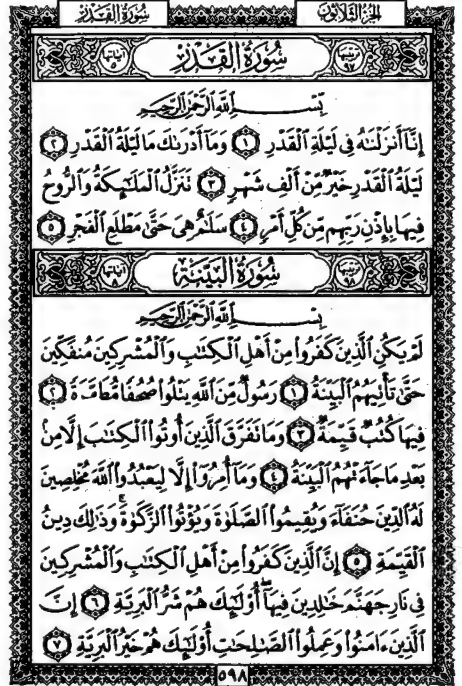 الجزء الثلاثون سورة القدر
ترتيبها ٩٧ سورة القدر آياتها ٥
بسم الله الرحمن الرحيم
إِنَّا أَنزَلْنَٰهُ فِى لَيْلَةِ ٱلْقَدْرِ ١ وَمَا أَدْرَىٰكَ مَا لَيْلَةُ ٱلْقَدْرِ ٢
لَيْلَةُ ٱلْقَدْرِ خَيْرٌ مِّنْ أَلْفِ شَهْرٍ ٣ تَنَزَّلُ ٱلْمَلَٰٓئِكَةُ وَٱلرُّوحُ
فِيهَا بِإِذْنِ رَبِّهِم مِّن كُلِّ أَمْرٍ ٤ سَلَٰمٌ هِىَ حَتَّىٰ مَطْلَعِ ٱلْفَجْرِ ٥
ترتيبها ٩٨ سورة البينة آياتها ٨
بسم الله الرحمن الرحيم
لَمْ يَكُنِ ٱلَّذِينَ كَفَرُوا۟ مِنْ أَهْلِ ٱلْكِتَٰبِ وَٱلْمُشْرِكِينَ مُنفَكِّينَ
حَتَّىٰ تَأْتِيَهُمُ ٱلْبَيِّنَةُ ١ رَسُولٌ مِّنَ ٱللَّهِ يَتْلُوا۟ صُحُفًا مُّطَهَّرَةً ٢
فِيهَا كُتُبٌ قَيِّمَةٌ ٣ وَمَا تَفَرَّقَ ٱلَّذِينَ أُوتُوا۟ ٱلْكِتَٰبَ إِلَّا مِنۢ
بَعْدِ مَا جَآءَتْهُمُ ٱلْبَيِّنَةُ ٤ وَمَآ أُمِرُوٓا۟ إِلَّا لِيَعْبُدُوا۟ ٱللَّهَ مُخْلِصِينَ
لَهُ ٱلدِّينَ حُنَفَآءَ وَيُقِيمُوا۟ ٱلصَّلَوٰةَ وَيُؤْتُوا۟ ٱلزَّكَوٰةَ وَذَٰلِكَ دِينُ
ٱلْقَيِّمَةِ ٥ إِنَّ ٱلَّذِينَ كَفَرُوا۟ مِنْ أَهْلِ ٱلْكِتَٰبِ وَٱلْمُشْرِكِينَ
فِى نَارِ جَهَنَّمَ خَٰلِدِينَ فِيهَآ أُو۟لَٰٓئِكَ هُمْ شَرُّ ٱلْبَرِيَّةِ ٦ إِنَّ
ٱلَّذِينَ ءَامَنُوا۟ وَعَمِلُوا۟ ٱلصَّٰلِحَٰتِ أُو۟لَٰٓئِكَ هُمْ خَيْرُ ٱلْبَرِيَّةِ ٧
٥٩٨